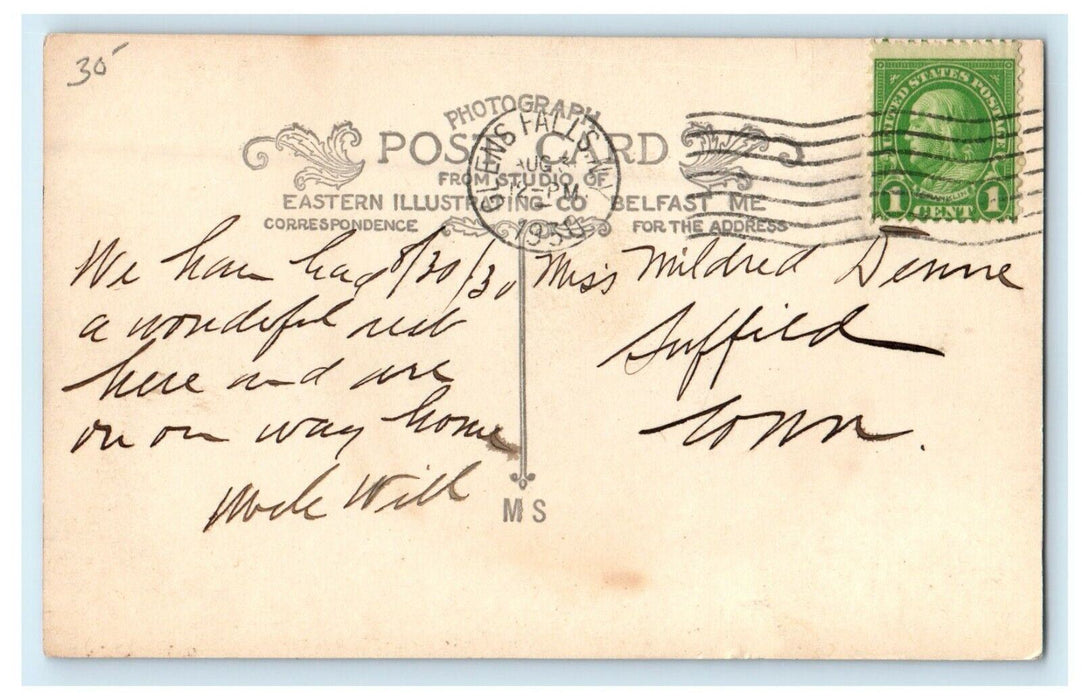 35
PHOTOGRAPH
POST CARD
FROM STUDIO OF
EASTERN ILLUSTRATING CO BELFAST ME
CORRESPONDENCE
FOR THE ADDRESS
GLENS FALLS N.Y.
AUG
12-PM
1930
UNITED STATES POSTAGE
FRANKLIN
1 CENT 1
8/30/30
We have had
a wonderful rest
here and are
on our way home
Uncle Will
Miss Mildred
Suffield
Conn.
M S